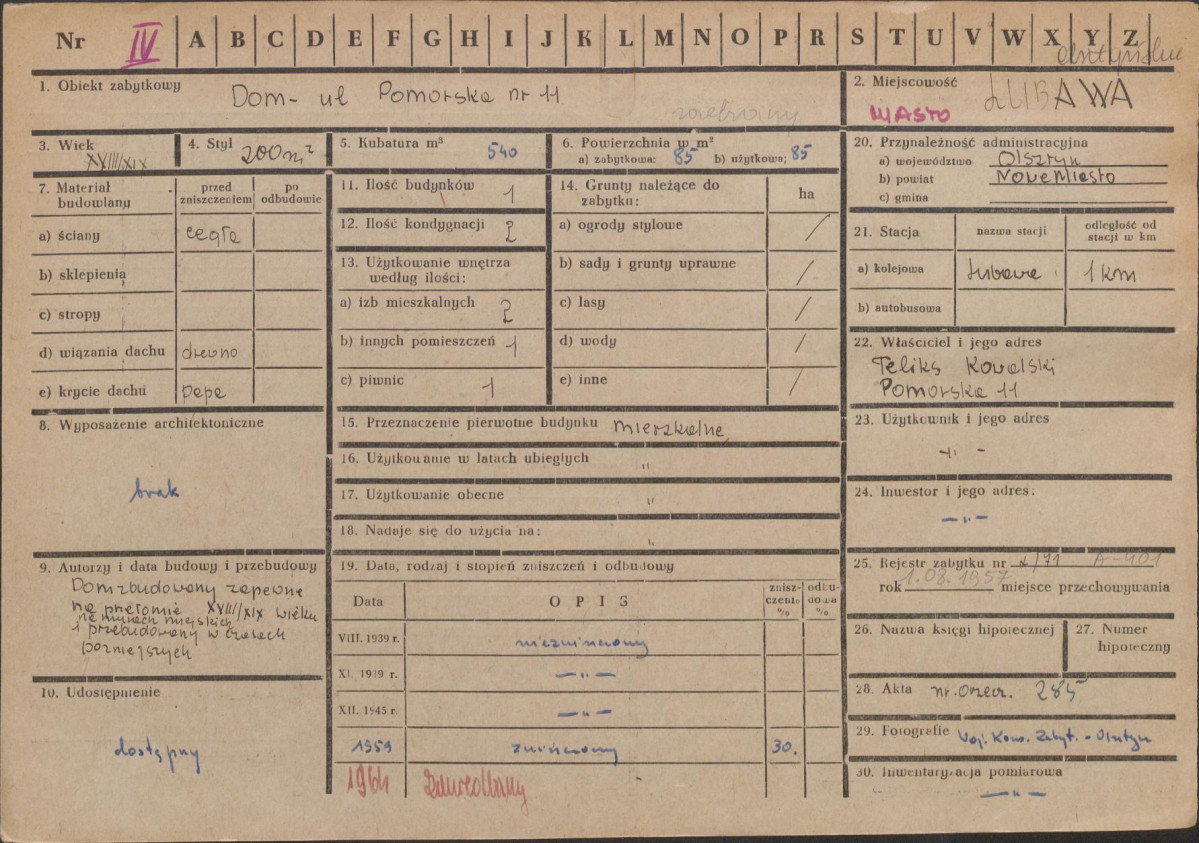 Nr IV A B C D E F G H I J K L M N O P R S T U V W X Y Z
1. Obiekt zabytkowy
Dom- ul Pomorska nr 11
2. Miejscowość
MIASTO
LUBAWA
3. Wiek
XVIII/XIX
4. Styl
200 m²
5. Kubatura m³
540
6. Powierzchnia w m²
a) zabytkowa: 85 b) użytkowa; 85
7. Materiał budowlany
przed zniszczeniem
po odbudowie
a) ściany cegła
b) sklepienia
c) stropy
d) wiązania dachu drewno
e) krycie dachu papa
8. Wyposażenie architektoniczne
brak
9. Autorzy i data budowy i przebudowy
Dom zbudowany zapewne
na przełomie XVIII/XIX wieku
na murach miejskich
i przebudowany w czasach
pozniejszych
10. Udostępnienie
dostępny
11. Ilość budynków 1
12. Ilość kondygnacji 2
13. Użytkowanie wnętrza
według ilości:
a) izb mieszkalnych 2
b) innych pomieszczeń 1
c) piwnic 1
14. Grunty należące do
zabytku:
ha
a) ogrody stylowe /
b) sady i grunty uprawne /
c) lasy /
d) wody /
e) inne /
15. Przeznaczenie pierwotne budynku mieszkalne
16. Użytkowanie w latach ubiegłych "
17. Użytkowanie obecne "
18. Nadaje się do użycia na: "
19. Data, rodzaj i stopień zniszczeń i odbudowy
Data
OPIS
znisz-
czenia
%
odbu-
dowa
%
VIII. 1939 r. niezniszczony
XI. 1939 r. — " —
XII. 1945 r. — " —
1959 zniszczony 30.
1964
20. Przynależność administracyjna
a) województwo Olsztyn
b) powiat Nowe Miasto
c) gmina
21. Stacja
nazwa stacji
odległość od
stacji w km
a) kolejowa Lubawa 1 km
b) autobusowa
22. Właściciel i jego adres
Feliks Kowalski
Pomorska 11
23. Użytkownik i jego adres
- " -
24. Inwestor i jego adres:
— " —
25. Rejestr zabytku nr L/71 A-401
rok 1.08.1957 miejsce przechowywania
26. Nazwa księgi hipotecznej
27. Numer
hipoteczny
28. Akta nr. orzecz. 285
29. Fotografie Woj. Kons. Zabyt. - Olsztyn
30. Inwentaryzacja pomiarowa
— " —